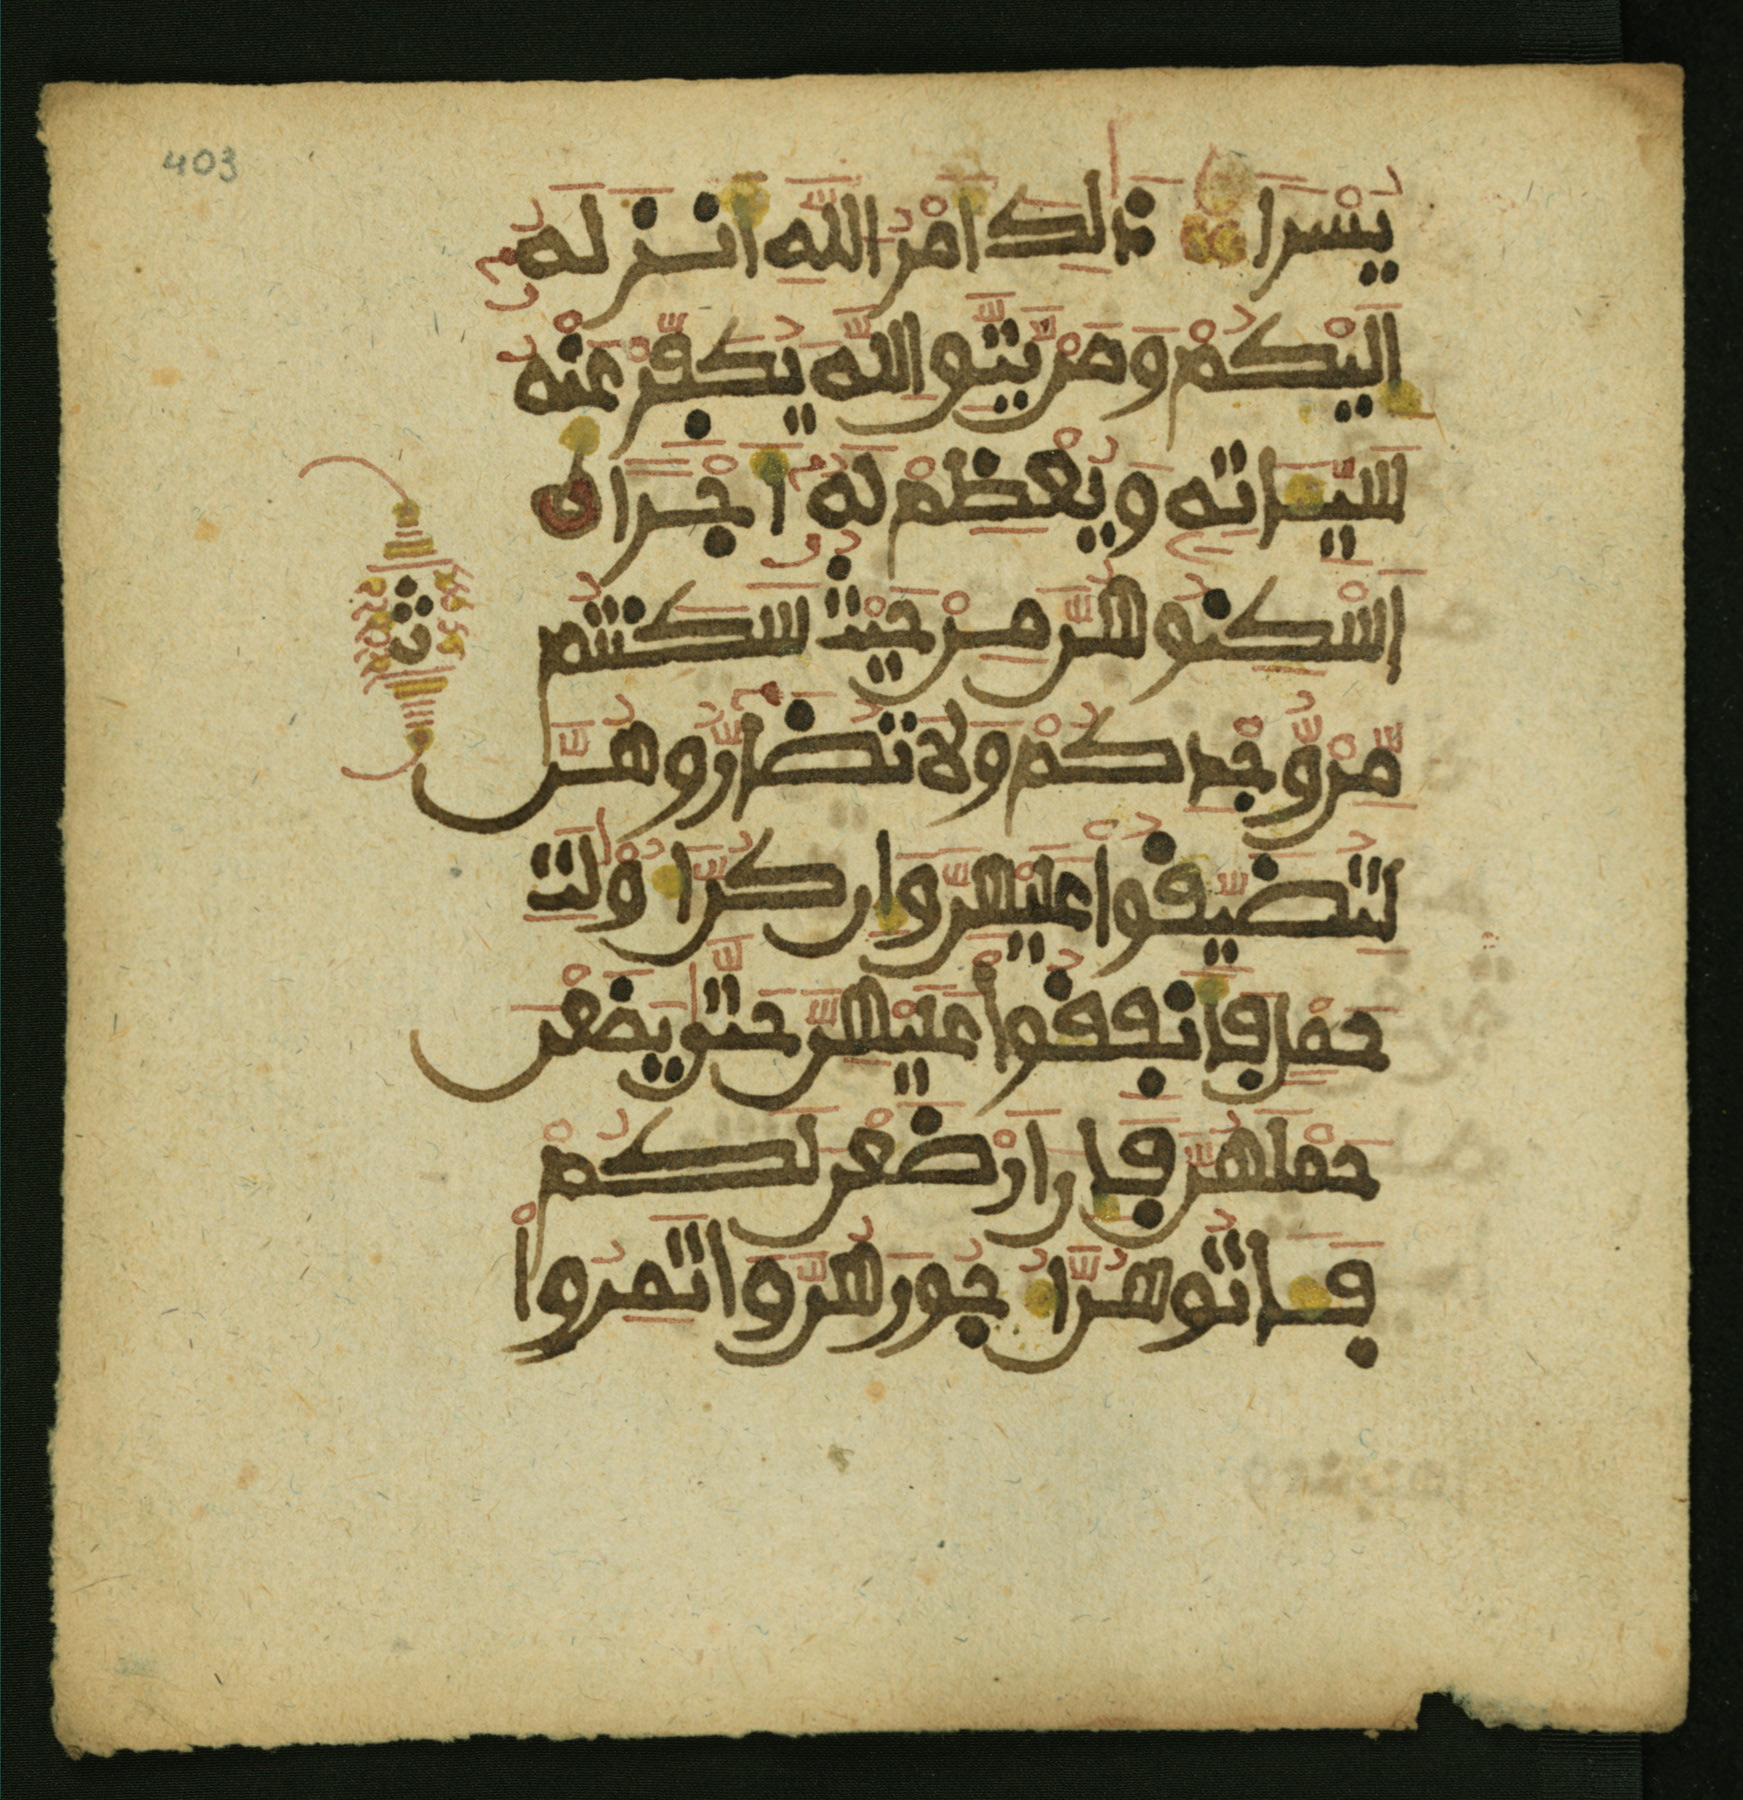 403
يُسْرًا ذَٰلِكَ أَمْرُ اللَّهِ أَنزَلَهُ
إِلَيْكُمْ وَمَنْ يَّتَّقِ اللَّهَ يُكَفِّرْ عَنْهُ
سَيِّـَٔاتِهِ وَيُعْظِمْ لَهُ أَجْرًا
اَسْكِنُوهُنَّ مِنْ حَيْثُ سَكَنتُم
مِّنْ وُّجْدِكُمْ وَلَا تُضَارُّوهُنَّ
لِتُضَيِّقُواْ عَلَيْهِنَّ وَإِن كُنَّ أُوْلَٰتِ
حَمْلٍ فَأَنفِقُواْ عَلَيْهِنَّ حَتَّىٰ يَضَعْنَ
حَمْلَهُنَّ فَإِنْ أَرْضَعْنَ لَكُمْ
فَـَٔاتُوهُنَّ أُجُورَهُنَّ وَاتَمِرُواْ